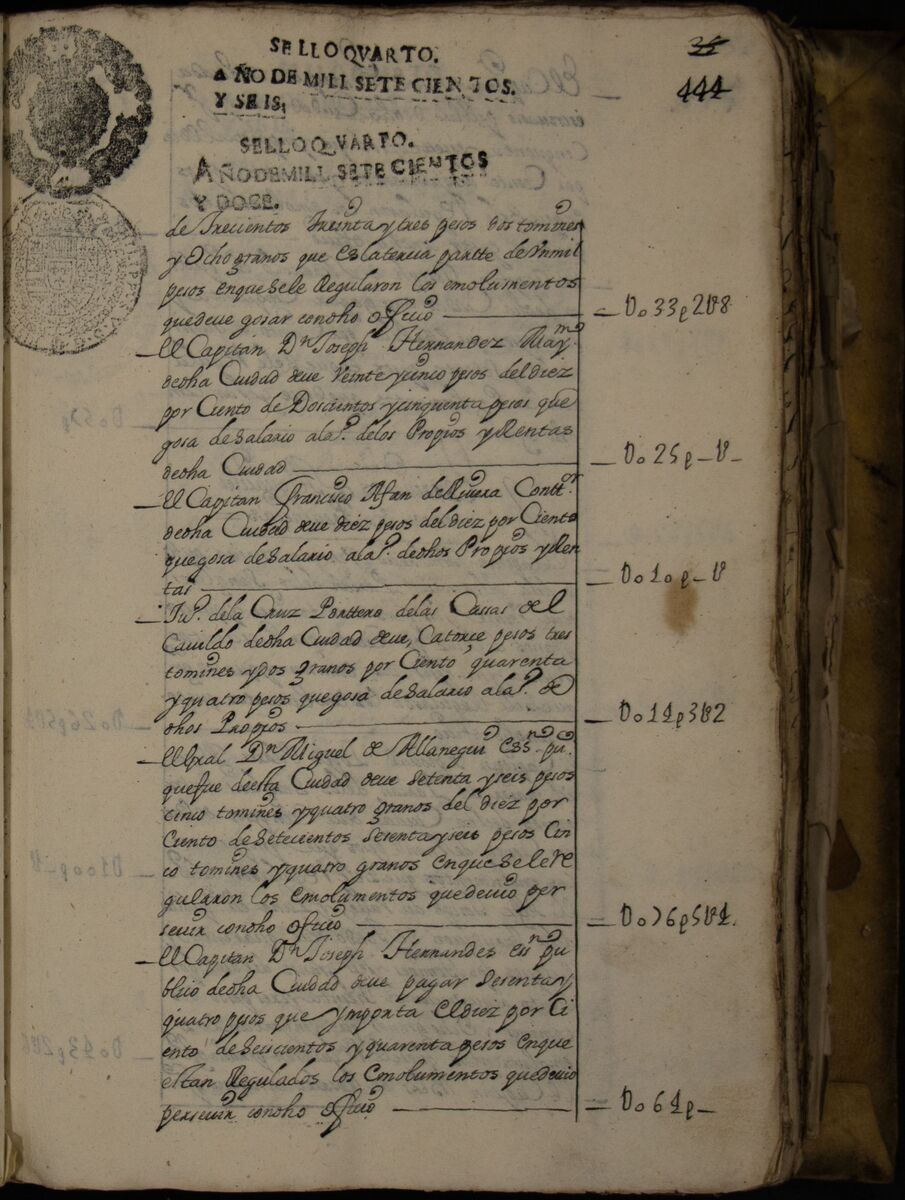 SELLO QVARTO.
AÑO DE MILL SETECIENTOS.
Y SEIS,
SELLO QVARTO.
AÑO DE MILL SETECIENTOS
Y DOCE.
36
444
de Trecientos treinta y tres pesos dos tomines
y ocho granos que es la tercia partte de Vn mil
pesos en que se le Regularon los emolumentos
que deve gosar con dho ofiçio — U033p2U8
El Capitan Dn Joseph Hernandez May.mo
de dha Ciudad deve Veinte y cinco pesos del diez
por Ciento de Doscientos y cinquenta pesos que
gosa de Salario a la p. de los Propios y Rentas
de dha Ciudad — U025p-U-
El Capitan Francisco Afan de Rivera Contt.or
de dha Ciudad deve diez pesos del diez por Ciento
que gosa de Salario a la p. de dhos Propios y Ren
tas — U010p-U
Ju.o de la Cruz Porttero de las Cassas de el
Cavildo de dha Ciudad deve, Catorce pesos tres
tomines y dos granos por Ciento, quarenta
y quatro pesos que gosa de Salario a la p. de
dhos Propios — U014p3U2
El Gral Dn Miguel de Allanegui essn. pu.co
que fue de esta Ciudad deve Setenta y seis pesos
cinco tomines y quatro granos del diez por
Ciento de Setecientos Sesenta y seis pesos Cin
co tomines y quatro granos en que se le re
gularon los emolumentos que devio per
sevir con dho ofiçio — U076p5U4.
El Capitan Dn Joseph Hernandes essn pu
blico de dha Ciudad deve pagar Sesenta y
quatro pesos que ymporta el diez por Ci
ento de Seiscientos y quarenta pesos en que
estan Regulados los emolumentos que devio
persevir con dho ofiçio — U064p-